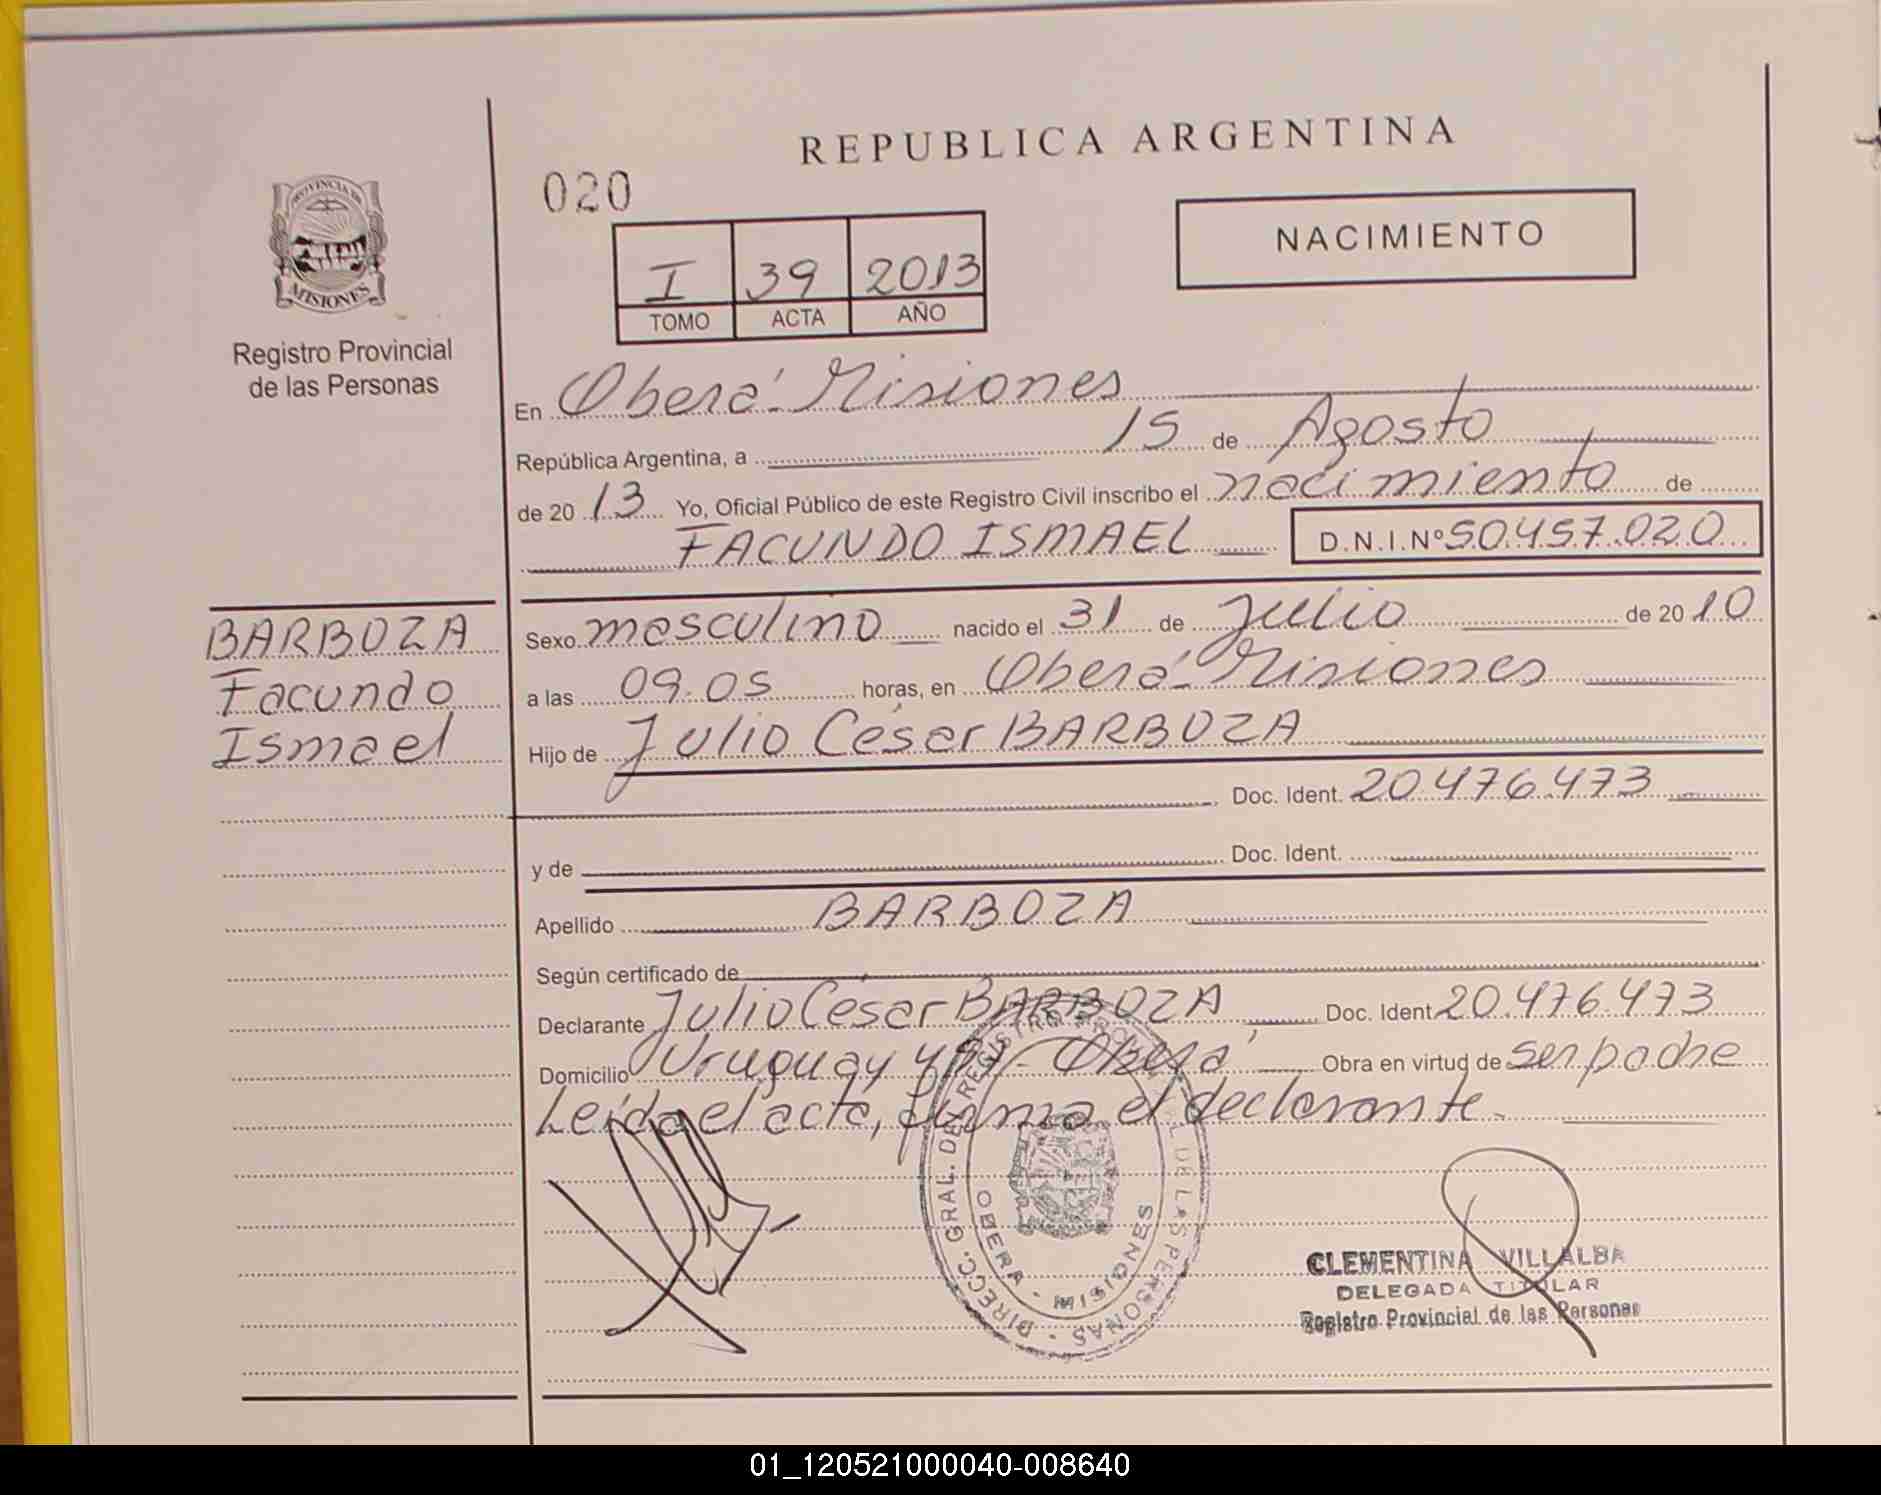 REPUBLICA ARGENTINA
020
NACIMIENTO
I 39 2013
TOMO ACTA AÑO
PROVINCIA DE
MISIONES
Registro Provincial
de las Personas
En Oberá - Misiones
República Argentina, a 15 de Agosto
de 2013 Yo, Oficial Público de este Registro Civil inscribo el nacimiento de
FACUNDO ISMAEL D.N.I.Nº 50.457.020
BARBOZA
Facundo
Ismael
Sexo masculino nacido el 31 de Julio de 2010
a las 09.05 horas, en Oberá - Misiones
Hijo de Julio César BARBOZA
Doc. Ident. 20.476.473
y de Doc. Ident.
Apellido BARBOZA
Según certificado de
Declarante Julio César BARBOZA Doc. Ident 20.476.473
Domicilio Uruguay - Oberá Obra en virtud de ser padre
Leída el acta, firma el declarante.
DIRECC. GRAL. DEL REGISTRO DE LAS PERSONAS
OBERA - MISIONES
CLEMENTINA VILLALBA
DELEGADA TITULAR
Registro Provincial de las Personas
01_120521000040-008640